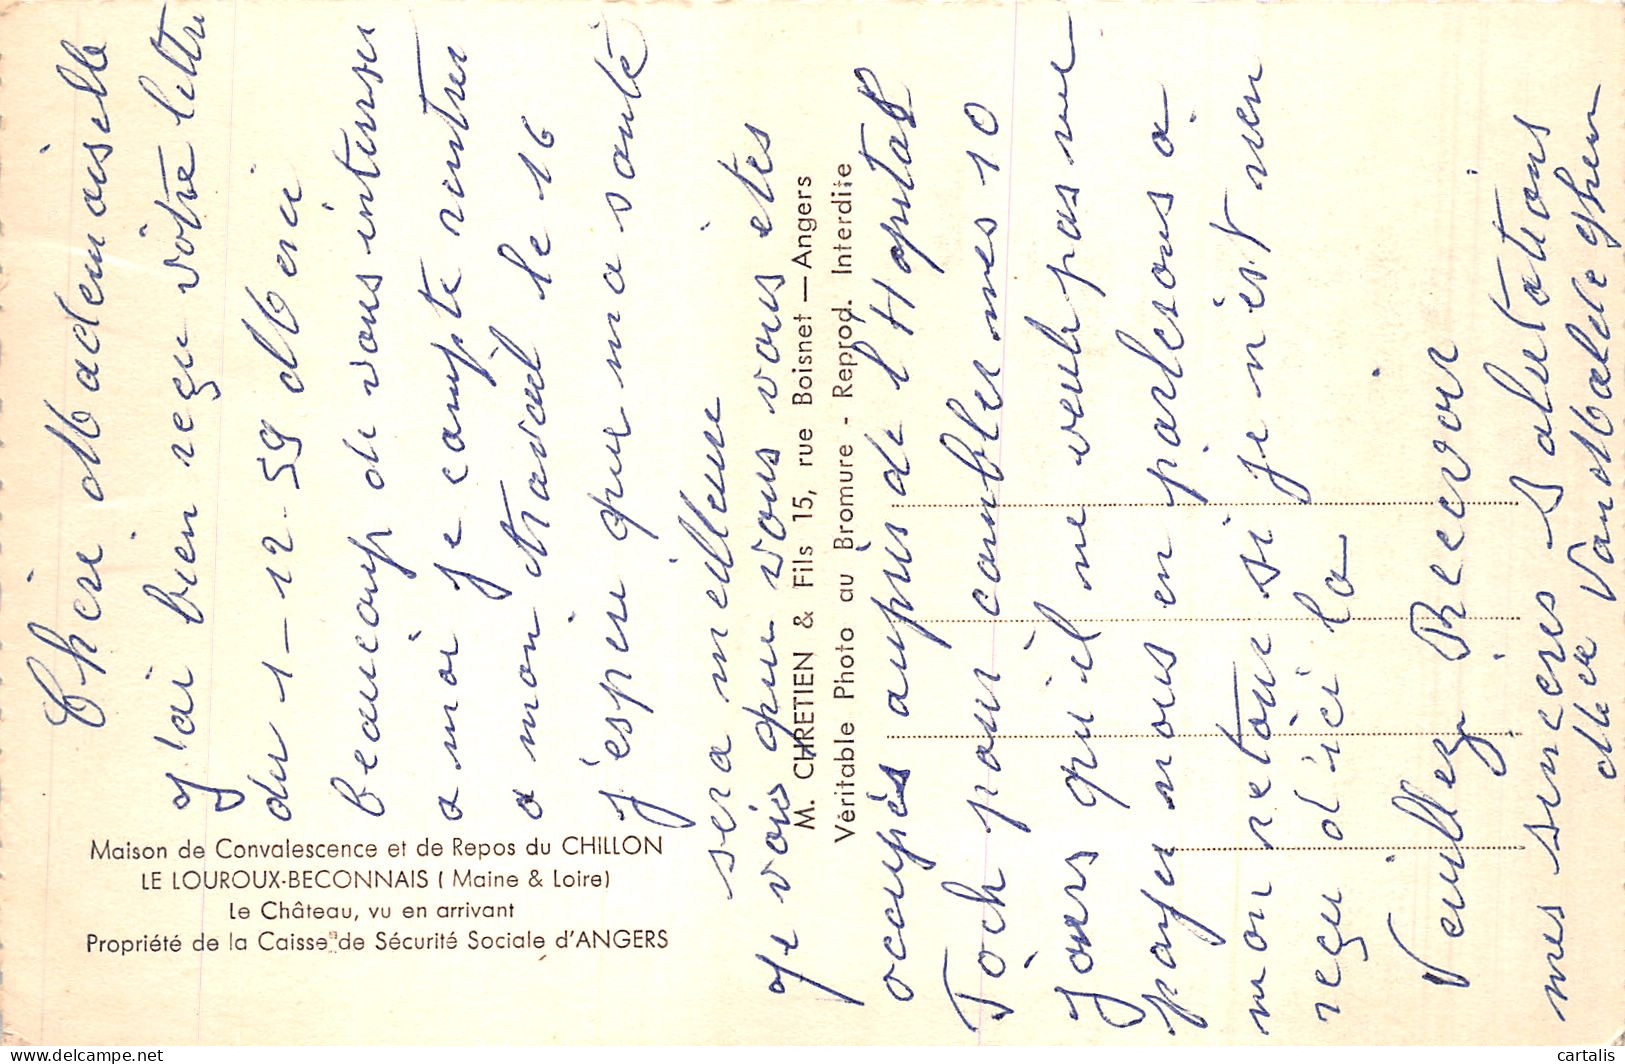 Maison de Convalescence et de Repos du CHILLON
LE LOUROUX-BECONNAIS ( Maine & Loire)
Le Château, vu en arrivant
Propriété de la Caisse de Sécurité Sociale d'ANGERS
M. CHRETIEN & Fils 15, rue Boisnet — Angers
Véritable Photo au Bromure - Reprod. Interdite
Chère Mademoiselle
J'ai bien reçu vôtre lettre
du 1-12-59 Merci
beaucoup de vous interesser
a moi je compte rentrer
a mon travail le 16
j'espère que ma santé
sera meilleure
Je vois que vous vous êtes
occupés auprès de l'Hopital
Foch pour combler mes 10
Jours qu'il ne veule pas me
payer nous en parlerons a
mon retour si je n'est rien
reçu d'ici la
Veuillez Recevoir
mes sincères Salutations